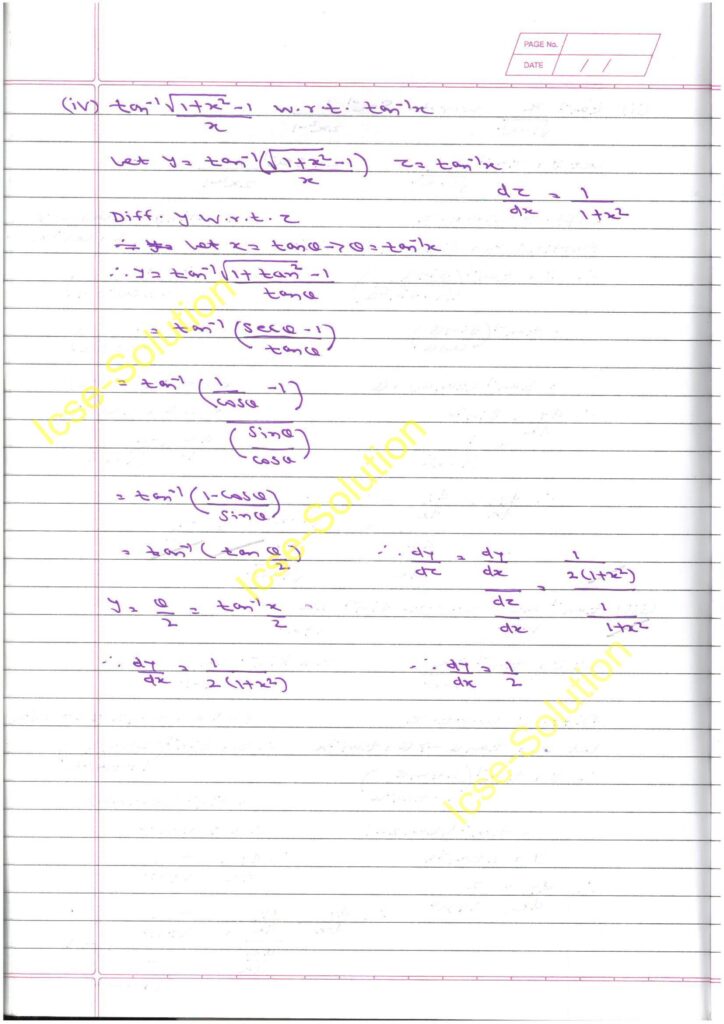 PAGE No.
DATE / /
(iv) tan⁻¹ √1+x² -1 w.r.t. tan⁻¹x
x
Let y = tan⁻¹(√1+x² -1) z = tan⁻¹x
x
dz = 1
dx 1+x²
Diff. y w.r.t. z
Let x = tanθ → θ = tan⁻¹x
∴ y = tan⁻¹ √1+tan² -1
tanθ
= tan⁻¹ (secθ -1)
tanθ
= tan⁻¹ (1 -1)
cosθ
(sinθ)
cosθ
= tan⁻¹ (1-cosθ)
sinθ
= tan⁻¹ (tan θ)
2
y = θ = tan⁻¹x
2 2
∴ dy = 1
dx 2(1+x²)
∴ dy = dy
dz dx
dz
dx
= 1
2(1+x²)
1
1+x²
∴ dy = 1
dx 2
Icse-Solution
Icse-Solution
Icse-Solution